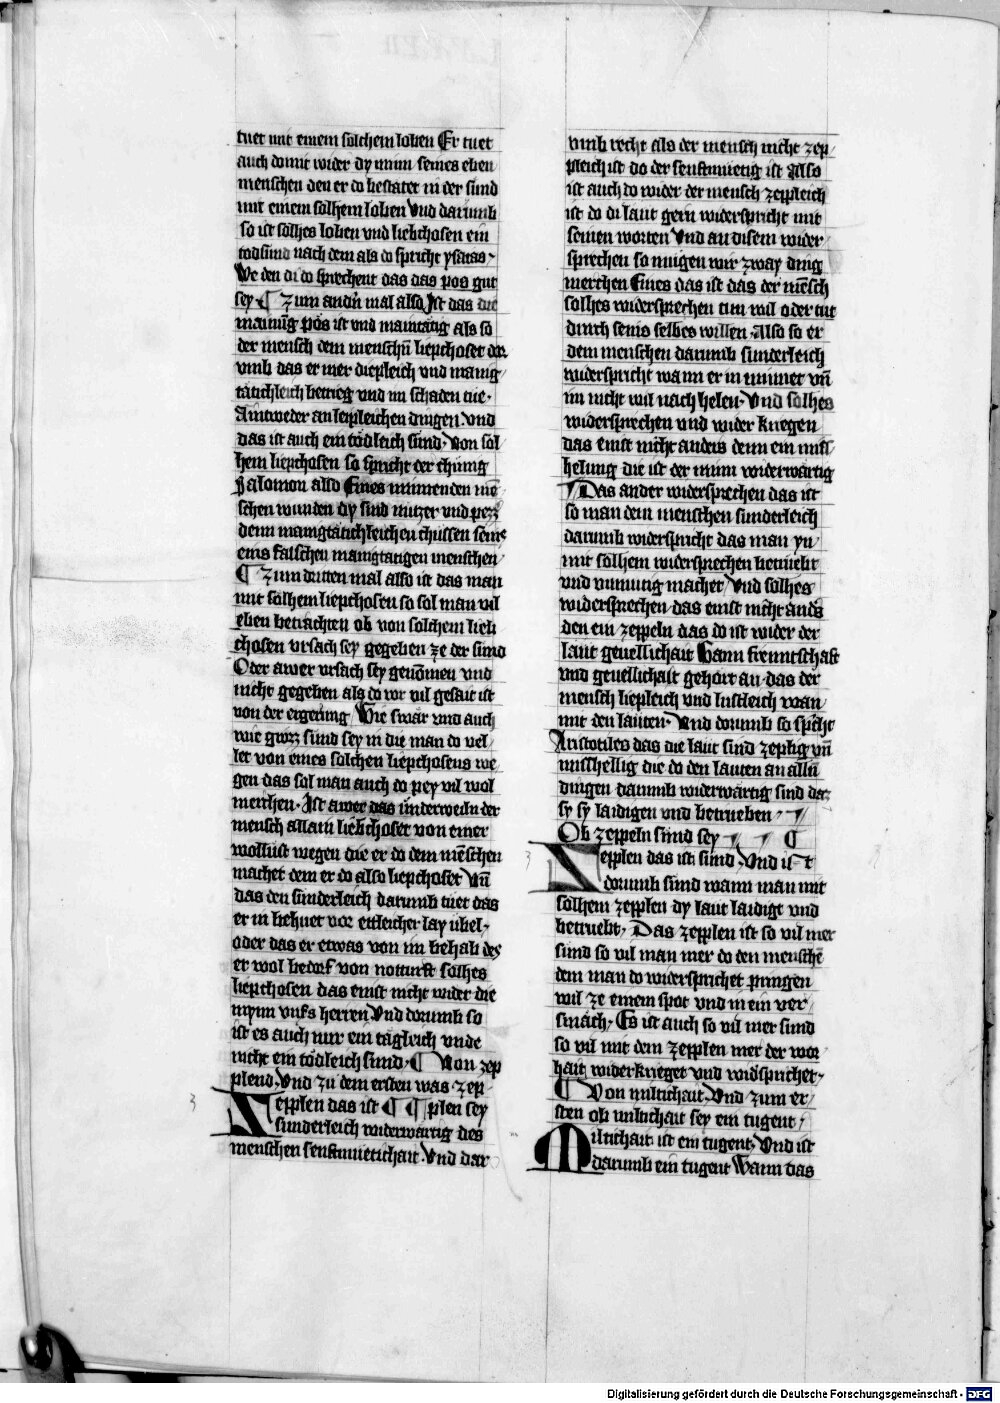 tuet mit einem solchem loben Er tuet
auch domit wider dy minn seines eben
menschen den er do bestätet in der sünd
mit einem solhem loben Vnd darumb
so ist solhes loben vnd liebchosen ein
todsünd nach dem als do spricht ysaias·
We den di do sprechent das das pos gut
sey ¶ Zum andn̄ mal also Ist das die
mainūg pös ist vnd maintätig als so
der mensch dem menschn̄ liepchoset dar
vmb das er mer diepleich vnd manig
tätichleich betrieg vnd im schaden tue·
Aintweder an leipleichen dingen· vnd
das ist auch ein tödleich sünd· Von sol
hem liepchosen so spricht der chünig
Salomon also Eines minnenden mē
schen wunden dy sind nützer vnd pezz
denn manigtätichleichen chussen seine
eins falschen manigtätigen menschen
¶ Zum dritten mal also ist das man
mit solhem liepchosen so sol man vil
eben betrachten ob von solchem lieb
chosen vrsach sey gegeben ze der sünd
Oder awer vrsach sey genōmen vnd
nicht gegeben als do vor vil gesait ist
von der ergerūg Wie swär vnd auch
wie grozz sünd sey in die man do vel
let von eines solchen liepchosens we
gen das sol man auch do pey vil wol
merchen· Ist awer das vnderweiln der
mensch allain liebchoset von einer
wollust wegen die er do dem mēschen
machet dem er do also liepchoset Vn̄
das den sünderleich darumb tuet das
er in behuet vor ettleicher lay übel·
oder das er etwas von im behab des
er wol bedorf von notturft solhes
liepchosen das einst nicht wider die
mynn vnsers herren Vnd dorumb so
ist es auch nur ein tägleich vnde
nicht ein tödleich sünd· ¶ Von zep
plend· Vnd zu dem ersten was zep
Zepplen das ist ¶ ¶ plen sey
sunderleich widerwärtig des
menschen senftmüetichait· Vnd dar
vmb recht als der mensch nicht zep
pleich ist do der senftmüetig ist Also
ist auch do wider der mensch zeppleich
ist do di laut gern widerspricht mit
seinen worten Vnd an disem wider
sprechen so mügen wir zway ding
merchen Eines das ist das der mēsch
solhes widersprechen tun wil oder tut
durch seins selbes willen Also so er
dem menschen darumb sunderleich
widerspricht wann er in minnet vn̄
im nicht wil nach helen· Vnd solhes
widersprechen vnd wider kriegen
das einst nicht anders denn ein miss
helung die ist der minn widerwärtig
¶ Das ander widersprechen das ist
so man dem menschen sunderleich
darumb widerspricht das man yn
mit solhem widersprechen betrüebt
vnd vnmutig machet Vnd solhes
widersprechen das einst nicht andˢ
den ein zeppeln das do ist wider der
laut gesellichait Wann freuntschaft
vnd gesellichait gehört an das der
mensch liepleich vnd lustleich wan
mit den lauten· Vnd dorumb so spicht
Aristotiles das die laut sind zeplig vn̄
misshellig die do den lauten an alln̄
dingen daumb widerwärtig sind daz
sy sy laidigen vnd betrüeben
Ob zeppeln sünd sey ¶
Zepplen das ist sünd Vnd ist
dorumb sünd wann man mit
solhem zepplen dy laut laidigt vnd
betrüebt· Das zepplen ist so vil mer
sünd so vil man mer do den menschē
dem man do widersprichet pringen
wil ze einem spot vnd in ein ver
smäch· Es ist auch so vil mer sünd
so vil mit dem zepplen mer der wor
hait widerkrieget vnd widspricht·
¶ Von miltichait· Vnd zum er
sten ob miltichait sey ein tugent·
Miltichait ist ein tugent· Vnd ist
darumb ein tugent Wann das
Digitalisierung gefördert durch die Deutsche Forschungsgemeinschaft - DFG